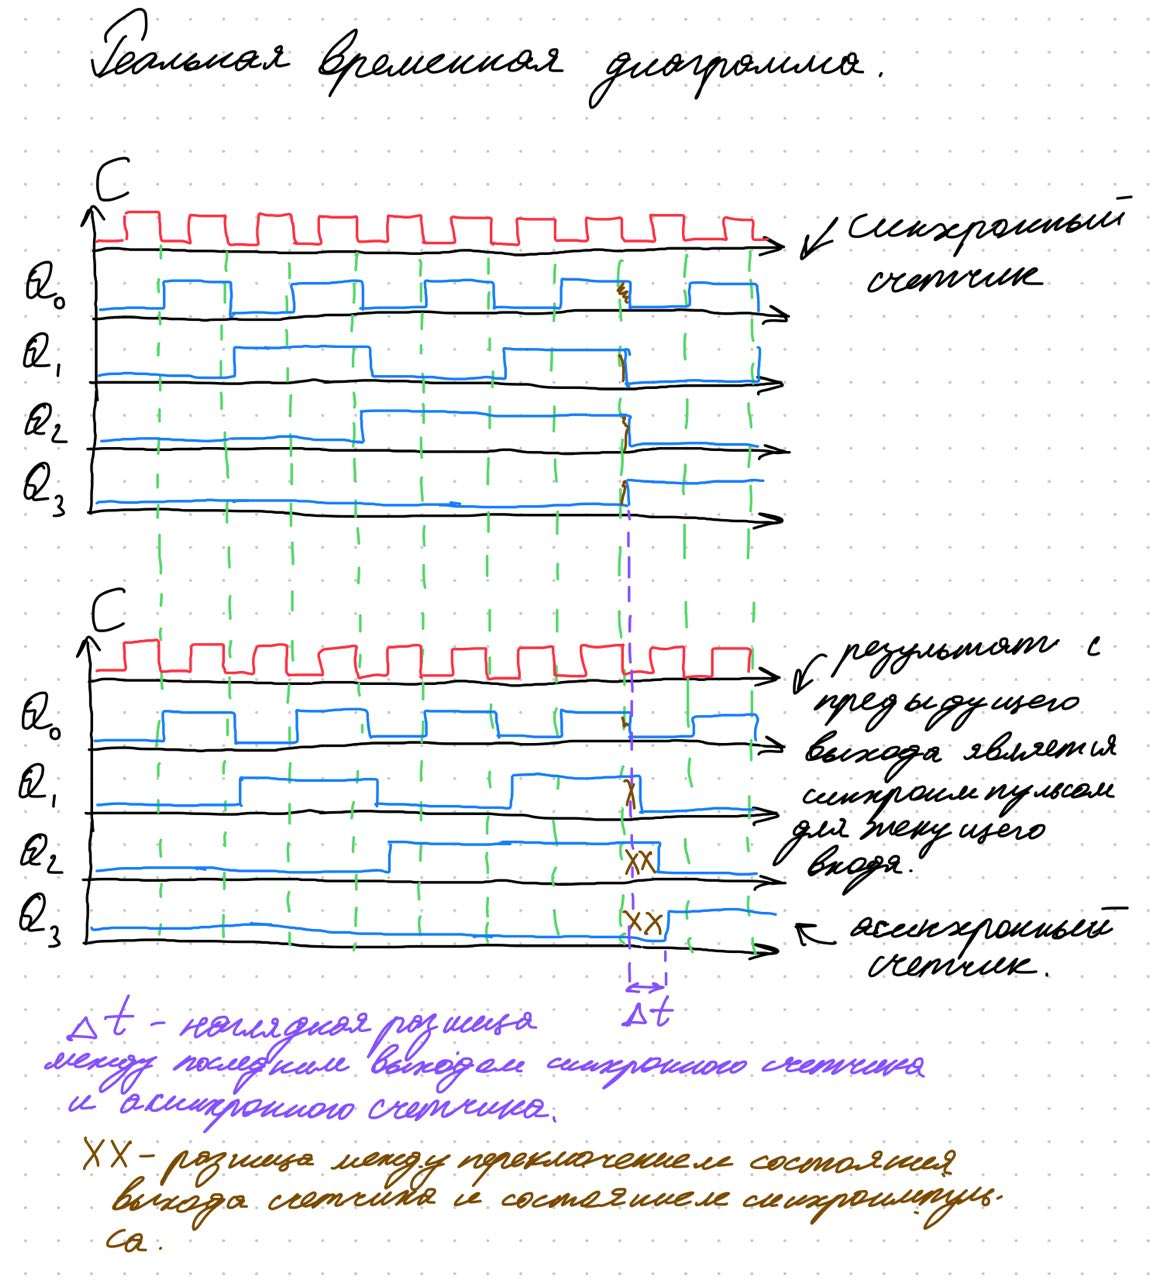 Реальная временная диаграмма.
C
Q0
Q1
Q2
Q3
синхронный
счетчик
C
Q0
Q1
Q2
Q3
результат с
предыдущего
выхода является
синхроимпульсом
для текущего
входа.
асинхронный
счетчик.
Δt
Δt - наглядная разница
между последним выходом синхронного счетчика
и асинхронного счетчика.
XX - разница между переключением состояния
выхода счетчика и состоянием синхроимпуль-
са.
X
XX
XX